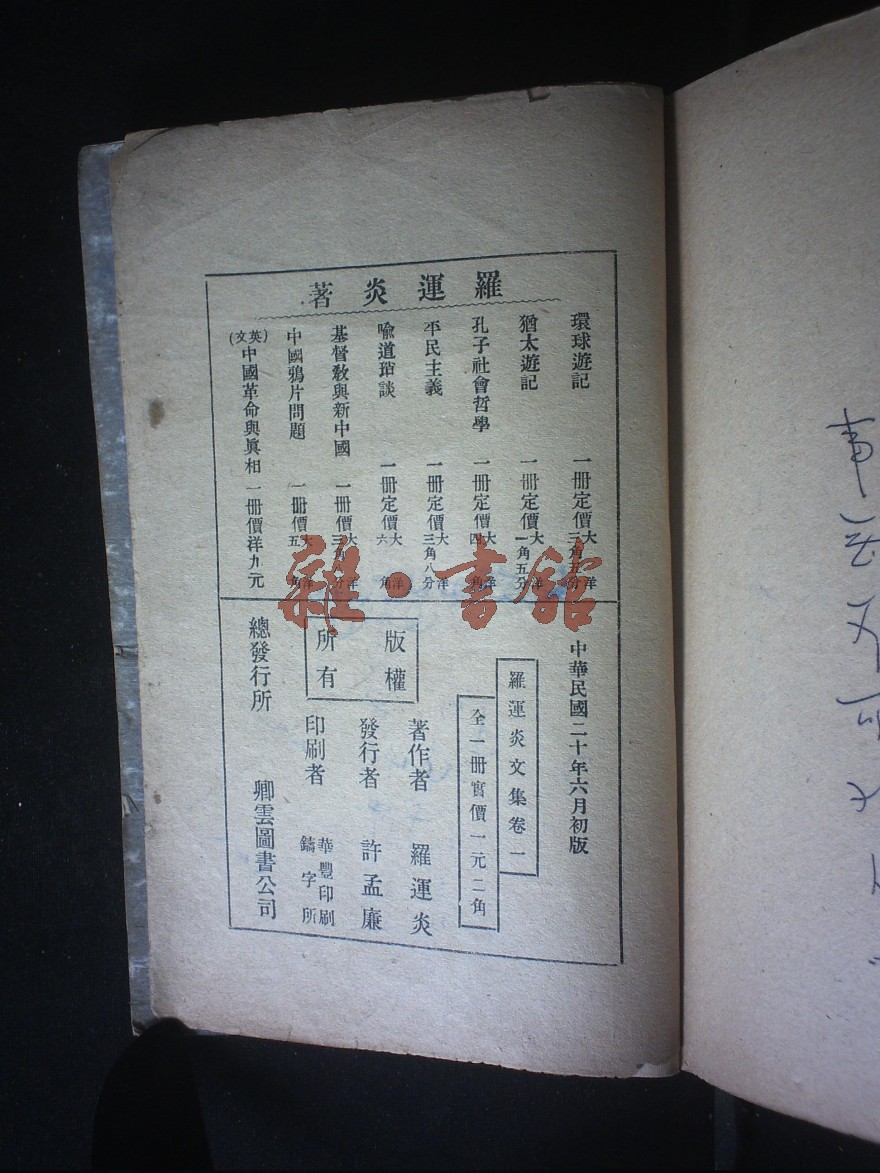 羅運炎著
環球遊記 一冊定價大洋三角五分
猶太遊記 一冊定價大洋一角五分
孔子社會哲學 一冊定價大洋四角
平民主義 一冊定價大洋三角八分
喻道瑣談 一冊定價大洋六角
基督教與新中國 一冊價大洋三角 分
中國鴉片問題 一冊價大洋五角
(英文)中國革命與眞相 一冊價洋九元
雜·書館
中華民國二十年六月初版
羅運炎文集卷一
全一冊實價一元二角
版權所有
著作者 羅運炎
發行者 許孟廉
印刷者 華豐印刷鑄字所
總發行所 卿雲圖書公司